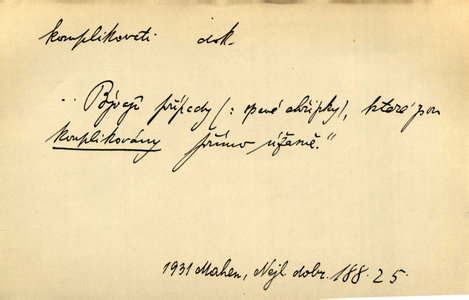 komplikovati dok.
„Bývají případy (: pavé chřipky), které jsou
komplikovány přímo úžasně.“
1931 Mahen, Nejl. dobr. 188. 25.